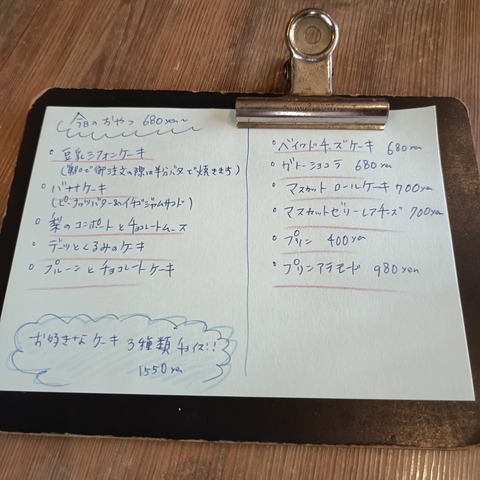 今日のおやつ 680yen~
・豆乳シフォンケーキ
・バナナケーキ
(ピーナッツバター&イチゴジャムサンド)
・梨のコンポートとチョコレートムース
・デーツとくるみのケーキ
・プルーンとチョコレートケーキ
お好きなケーキ 3種類チョイス!!
1550yen
・ベイクドチーズケーキ 680yen
・ガトーショコラ 680yen
・マスカットロールケーキ 700yen
・マスカットゼリーレアチーズ 700yen
・プリン 400yen
・プリンアラモード 980yen